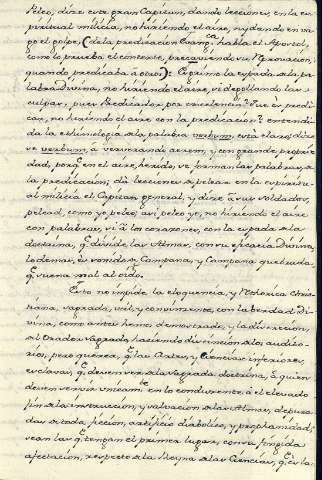 Peleo, dize este gran Capitan, dando lecciones, en la es-
piritual milicia, no hiriendo el aire, ny dando en va-
go el golpe, (de la predicacion Evangca. habla el Apostol,
como lo prueba el contexte, precaviendo su reprovacion,
quando predicaba à otros): Esgrimo la espada de la pa-
labra Divina, no hiriendo el aire, si degollando las
culpas, pues Predicador, por excelencia? Que es predi-
car, no hiriendo el aire con la predicacion? entendi-
da la ethimologia de la palabra verbum, està claro; dize-
se verbum, à ververando aerem, y con grande proprie-
dad, porq. en el aire, herido, se forman las palabras, de
la predicacion; dà lecciones de pelear en la espiritu-
al milicia el Capitan general, y dize à sus soldados,
pelead, como yo peleo; assi peleo yo, no hiriendo el aire
con palabras, si à los corazones, con la espada de la
doctrina, q. divide, las Almas, con su eficacia divina,
lo demas, es sonido de Campana, y Campana quebrada
q. suena mal al oìdo.
Esto no impide la eloquencia, y Rethorica Chris-
tiana, sagrada, util, y conviniente, con la verdad Di-
vina, como antes hemos demostrado, y la discrecion,
del Orador sagrado, haciendo distincion de los audito-
rios, pero querer, q. las Artes, y Ciencias inferiores,
esclavas, q. deven ser de la sagrada doctrina, à quien
deven servir unicamte. en lo conducente, à el elevado
fin de la instruccion, y salvacion de las Almas, depura-
das de toda ficcion, artificio diabolico, y prophanidad;
sean las q. tengan el primer lugar, con su fingida
afectacion, respecto de la Reyna de las Ciencias, q. es la